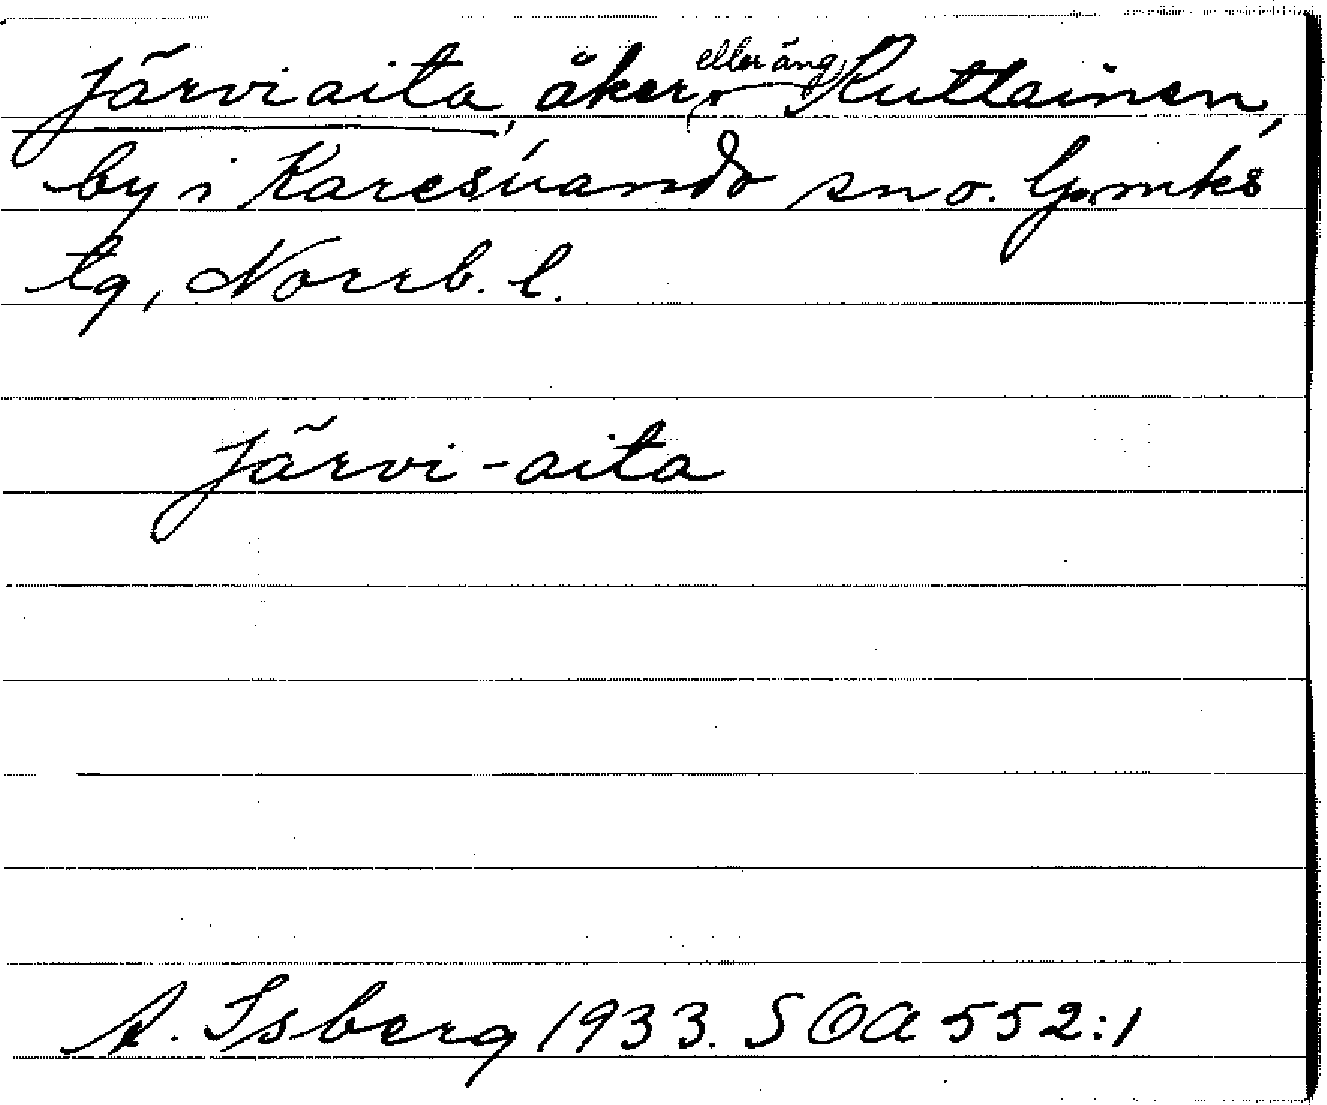 Järviaita, åker eller äng, Kuttainen,
by i Karesuando sn o. lpmks
tg, Norrb. l.
Järvi-aita
A. Isberg 1933. SOA 552:1